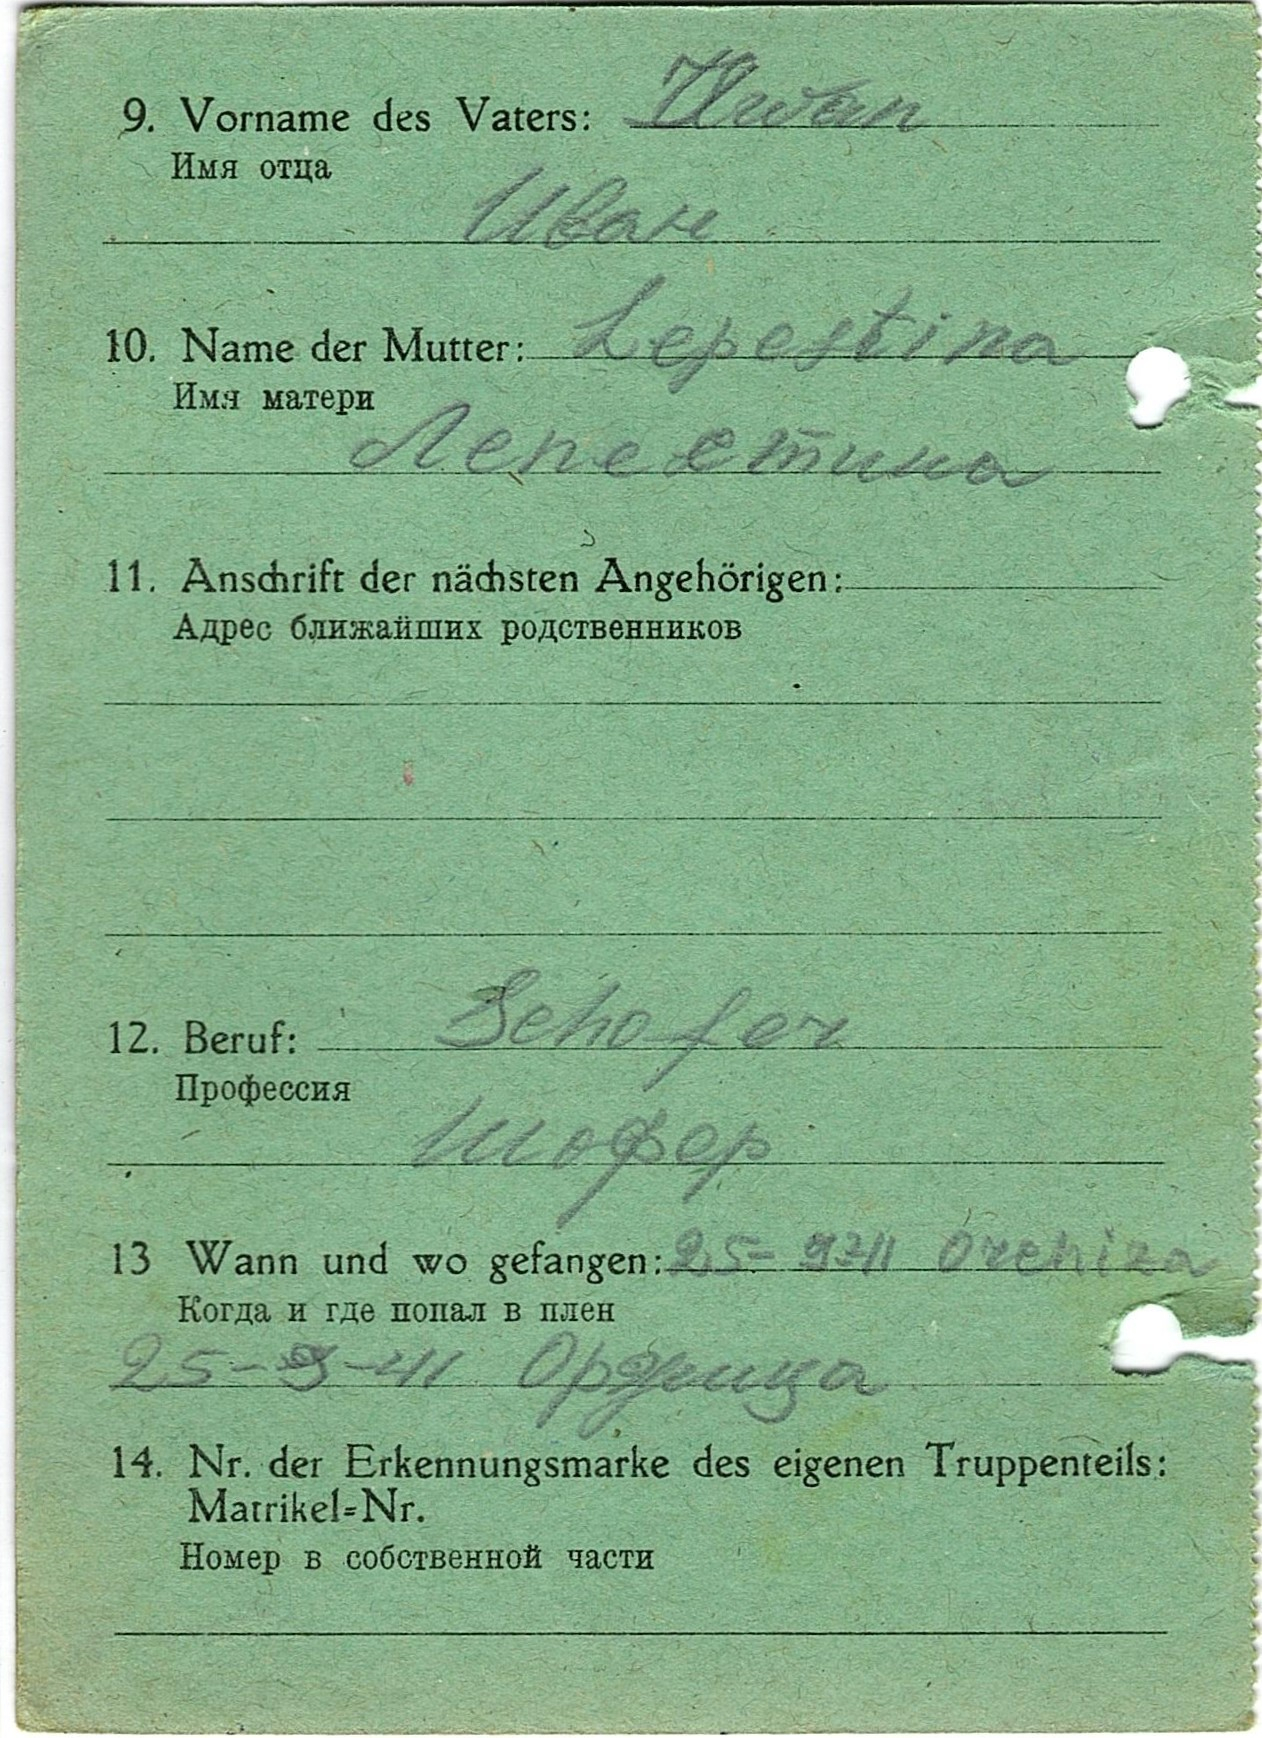 9. Vorname des Vaters: Iwan
Имя отца
Иван
10. Name der Mutter: Lepestina
Имя матери
Лепестина
11. Anschrift der nächsten Angehörigen:
Адрес ближайших родственников
12. Beruf: Schofer
Профессия
Шофер
13 Wann und wo gefangen: 25-9-41
Когда и где попал в плен
25-9-41 Оржица
14. Nr. der Erkennungsmarke des eigenen Truppenteils:
Matrikel=Nr.
Номер в собственной части